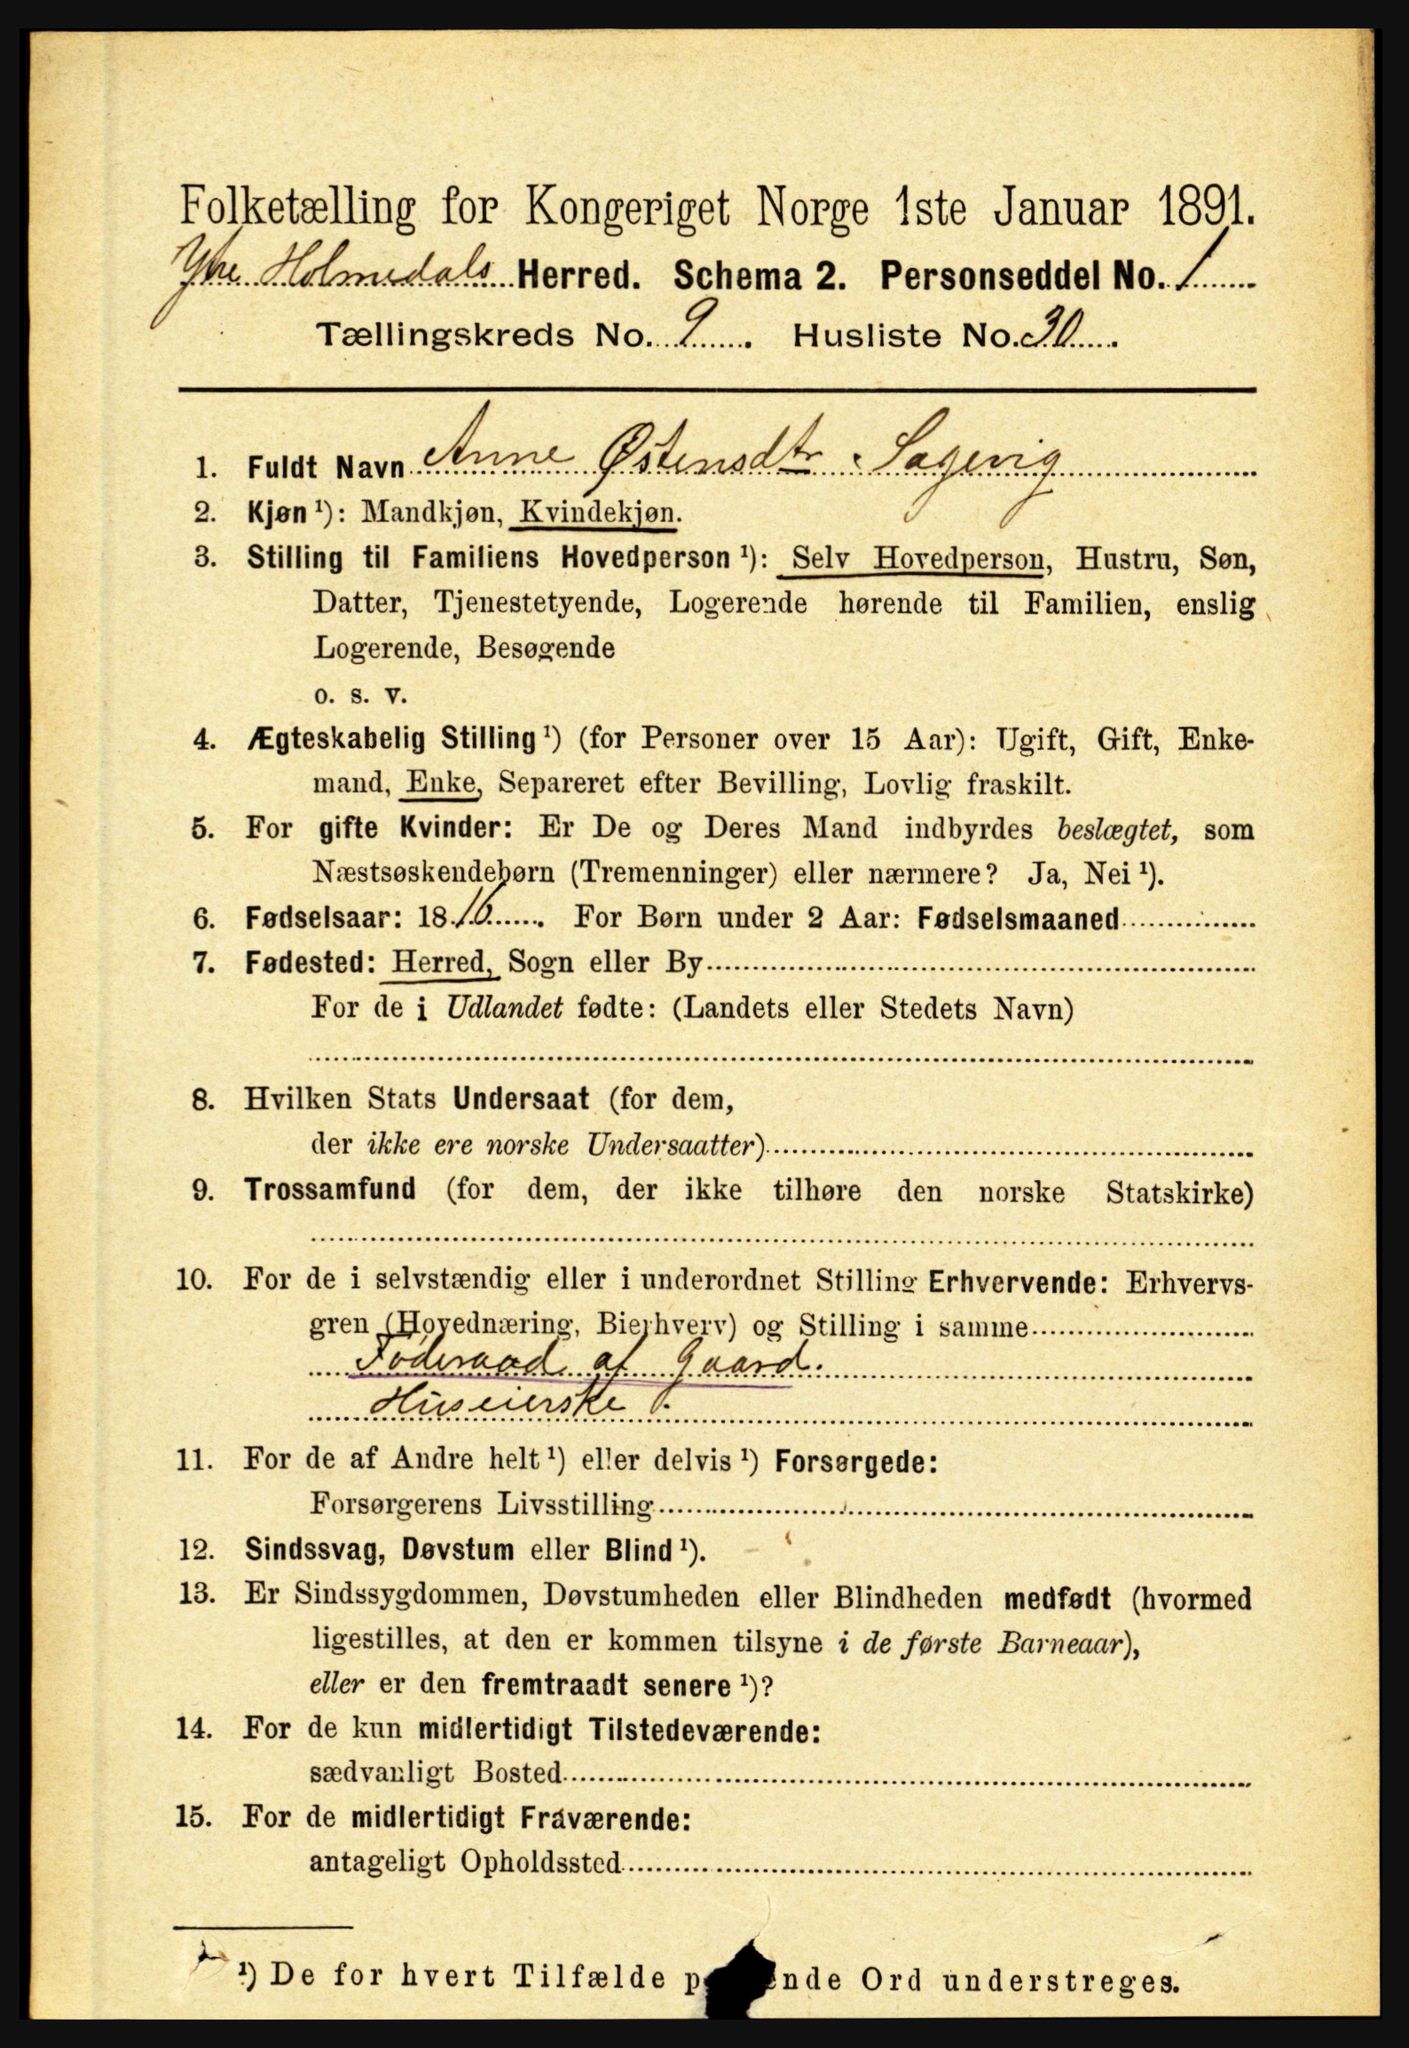 Folketælling for Kongeriget Norge 1ste Januar 1891.
Ytre Holmedals Herred. Schema 2. Personseddel No. 1
Tællingskreds No. 9. Husliste No. 30.
1. Fuldt Navn Anne Østensdtr Sagevig
2. Kjøn ¹): Mandkjøn, Kvindekjøn.
3. Stilling til Familiens Hovedperson ¹): Selv Hovedperson, Hustru, Søn,
Datter, Tjenestetyende, Logerende hørende til Familien, enslig
Logerende, Besøgende
o. s. v.
4. Ægteskabelig Stilling ¹) (for Personer over 15 Aar): Ugift, Gift, Enke-
mand, Enke, Separeret efter Bevilling, Lovlig fraskilt.
5. For gifte Kvinder: Er De og Deres Mand indbyrdes beslægtet, som
Næstsøskendebørn (Tremenninger) eller nærmere? Ja, Nei ¹).
6. Fødselsaar: 1816. For Børn under 2 Aar: Fødselsmaaned
7. Fødested: Herred, Sogn eller By
For de i Udlandet fødte: (Landets eller Stedets Navn)
8. Hvilken Stats Undersaat (for dem,
der ikke ere norske Undersaatter)
9. Trossamfund (for dem, der ikke tilhøre den norske Statskirke)
10. For de i selvstændig eller i underordnet Stilling Erhvervende: Erhvervs-
gren (Hovednæring, Bierhverv) og Stilling i samme
Føderaad af Gaard.
Huseierske.
11. For de af Andre helt ¹) eller delvis ¹) Forsørgede:
Forsørgerens Livsstilling
12. Sindssvag, Døvstum eller Blind ¹).
13. Er Sindssygdommen, Døvstumheden eller Blindheden medfødt (hvormed
ligestilles, at den er kommen tilsyne i de første Barneaar),
eller er den fremtraadt senere ¹)?
14. For de kun midlertidigt Tilstedeværende:
sædvanligt Bosted
15. For de midlertidigt Fraværende:
antageligt Opholdssted
¹) De for hvert Tilfælde p ende Ord understreges.